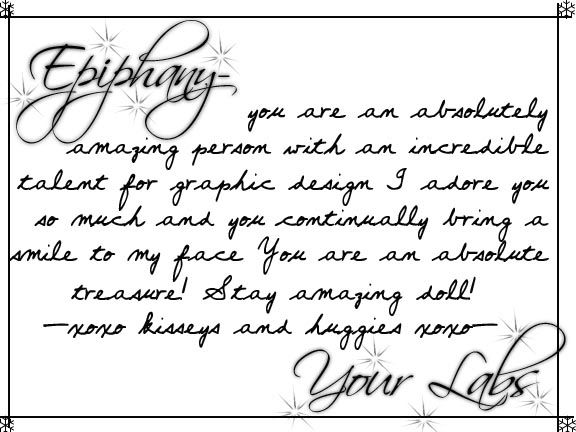 Epiphany-
you are an absolutely
amazing person with an incredible
talent for graphic design I adore you
so much and you continually bring a
smile to my face You are an absolute
treasure! Stay amazing doll!
-xoxo kisseys and huggies xoxo-
Your Labs